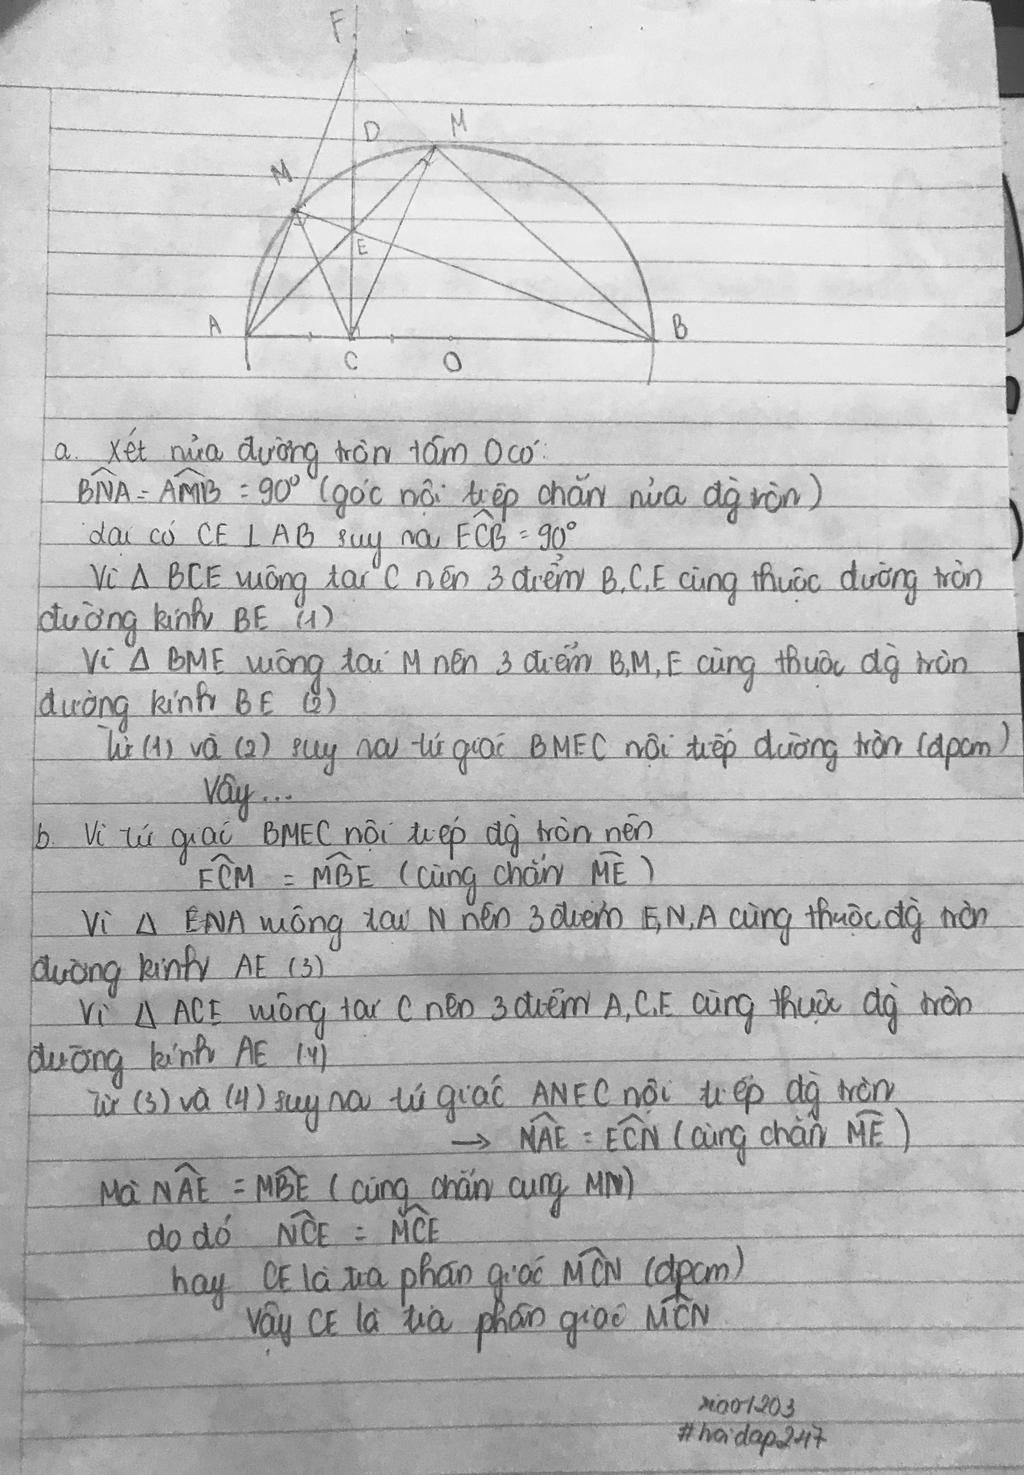 F
D
M
M
E
A
B
C
O
a. Xét nửa đường tròn tâm O có:
BNA = AMB = 90° (góc nội tiếp chắn nửa đg tròn)
Lại có CE ⊥ AB suy ra ECB = 90°
Vì Δ BCE vuông tại C nên 3 điểm B, C, E cùng thuộc đường tròn
đường kính BE (1)
Vì Δ BME vuông tại M nên 3 điểm B, M, E cùng thuộc đg tròn
đường kính BE (2)
Từ (1) và (2) suy ra tứ giác BMEC nội tiếp đường tròn (đpcm)
Vậy...
b. Vì tứ giác BMEC nội tiếp đg tròn nên
ECM = MBE (cùng chắn ME)
Vì Δ ENA vuông tại N nên 3 điểm E, N, A cùng thuộc đg tròn
đường kính AE (3)
Vì Δ ACE vuông tại C nên 3 điểm A, C, E cùng thuộc đg tròn
đường kính AE (4)
Từ (3) và (4) suy ra tứ giác ANEC nội tiếp đg tròn
→ NAE = ECN (cùng chắn ME)
Mà NAE = MBE (cùng chắn cung MN)
do đó NCE = MCE
hay CE là tia phân giác MCN (đpcm)
Vậy CE là tia phân giác MCN
#hoidap247